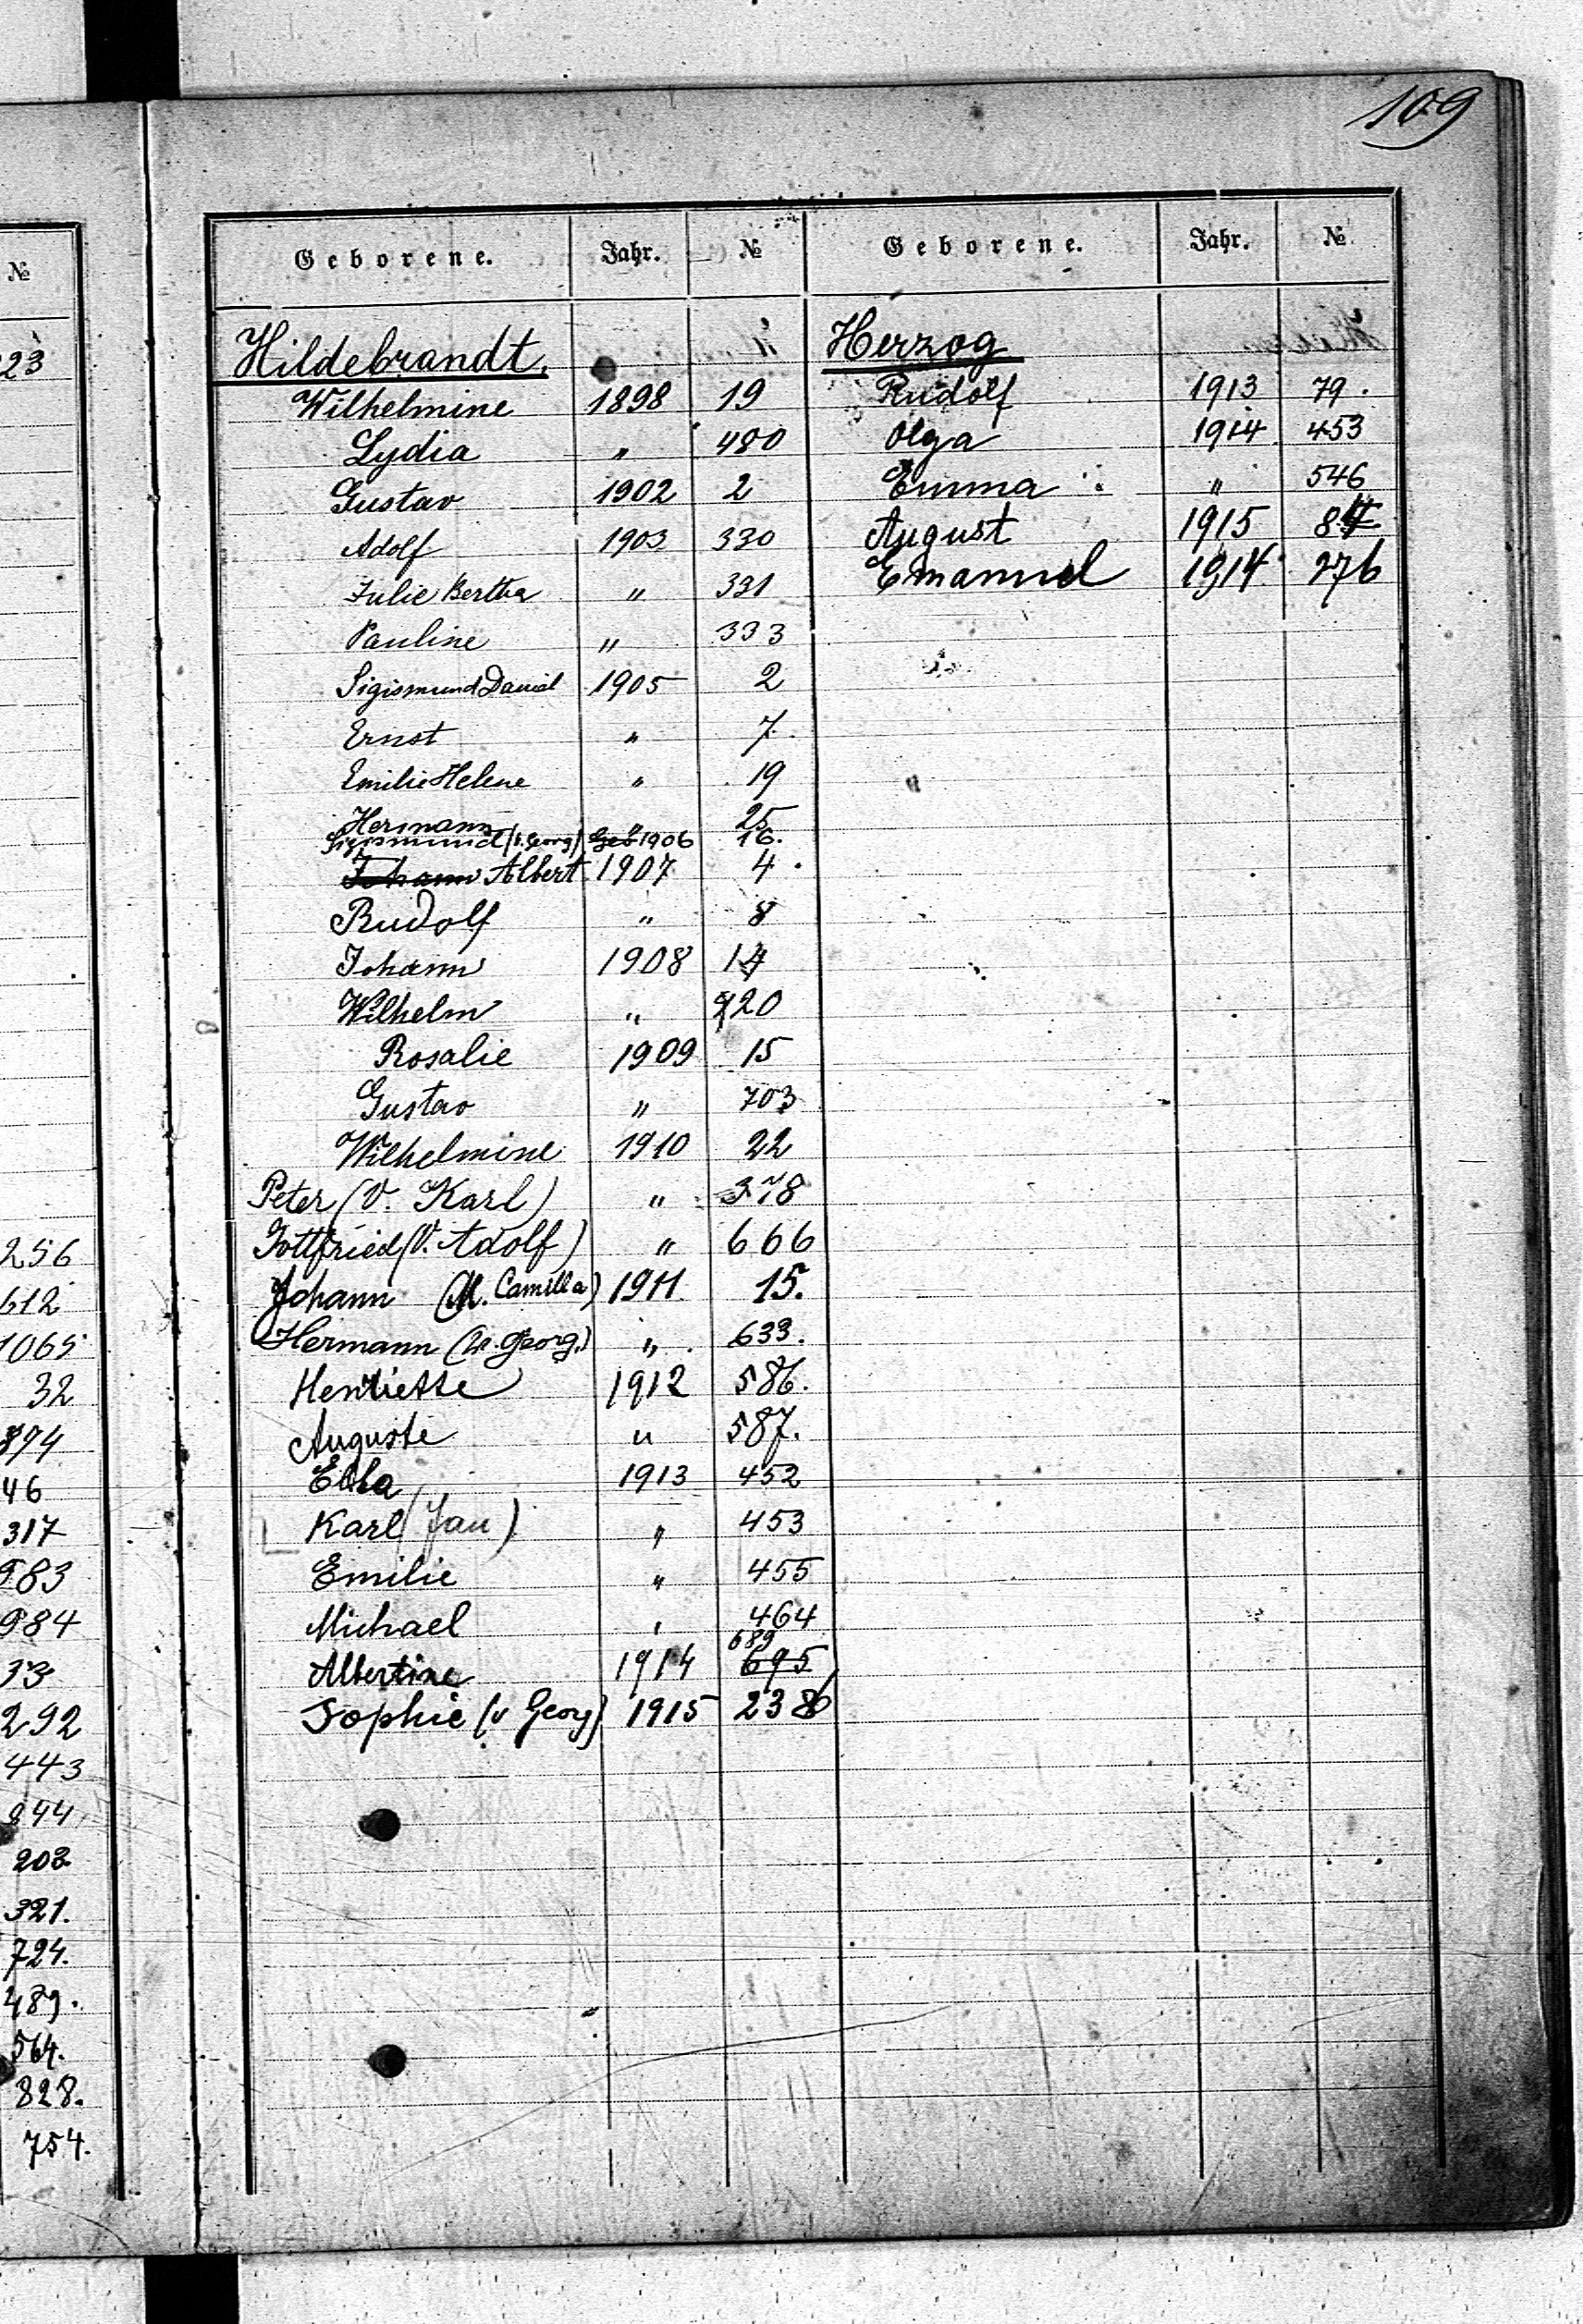 109
№
23
256
612
1065
32
894
46
317
983
984
33
292
443
844
203
321.
724.
489.
564.
828.
754.
Geborene. Jahr. №
Hildebrandt.
Wilhelmine 1898 19
Lydia " 480
Gustav 1902 2
Adolf 1903 330
Julie Bertha " 331
Pauline " 333
Sigismund Daniel 1905 2
Ernst " 7.
Emilie Helene " 19
Hermann " 25
Sigismund (v. Georg) Geb 1906 16.
Johann Albert 1907 4.
Rudolf " 8
Johann 1908 14
Wilhelm " 20
Rosalie 1909 15
Gustav " 703
Wilhelmine 1910 22
Peter (V. Karl) " 378
Gottfried (V. Adolf) " 666
Johann (M. Camilla) 1911 15.
Hermann (V. Georg.) " 633.
Henriette 1912 586.
Auguste " 587.
1913 452
Karl (Jan) " 453
Emilie " 455
Michael " 464
689
Albertine 1914 695
Sophie (v Georg) 1915 236
Geborene. Jahr. №
Herzog
Rudolf 1913 79.
Olga 1914 453
Emma " 546
August 1915 84
Emanuel 1914 276